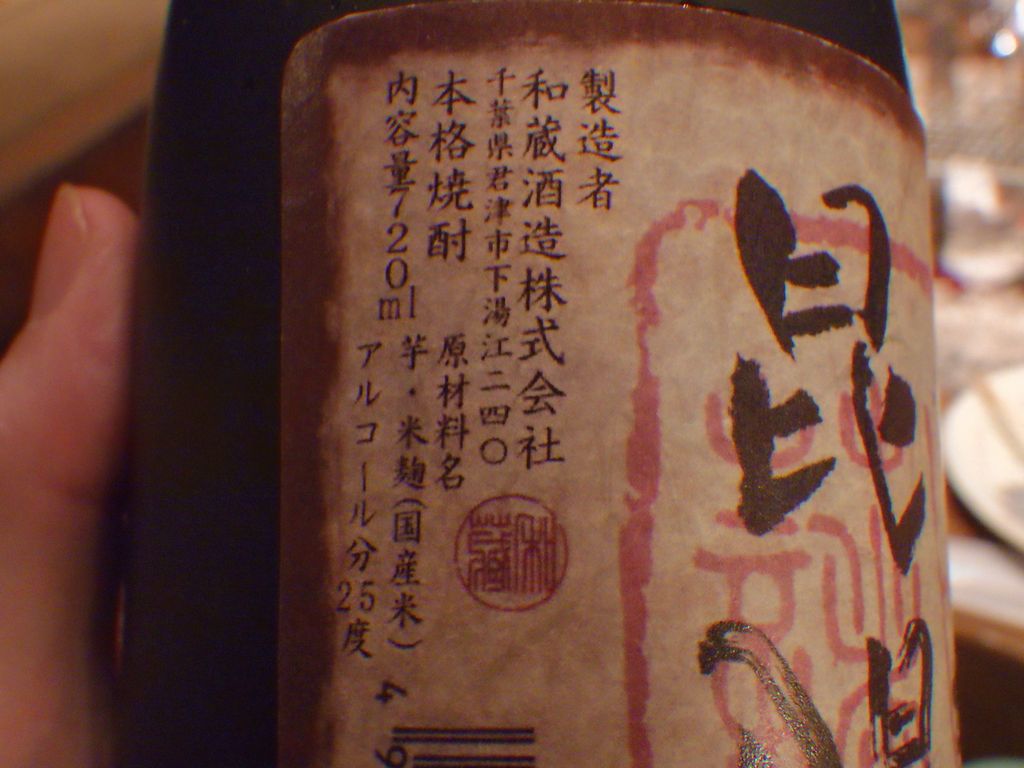 昆
製造者
和蔵酒造株式会社
千葉県君津市下湯江二四〇
本格焼酎
原材料名
芋・米麹(国産米)
内容量720ml
アルコール分25度
和蔵
4 9